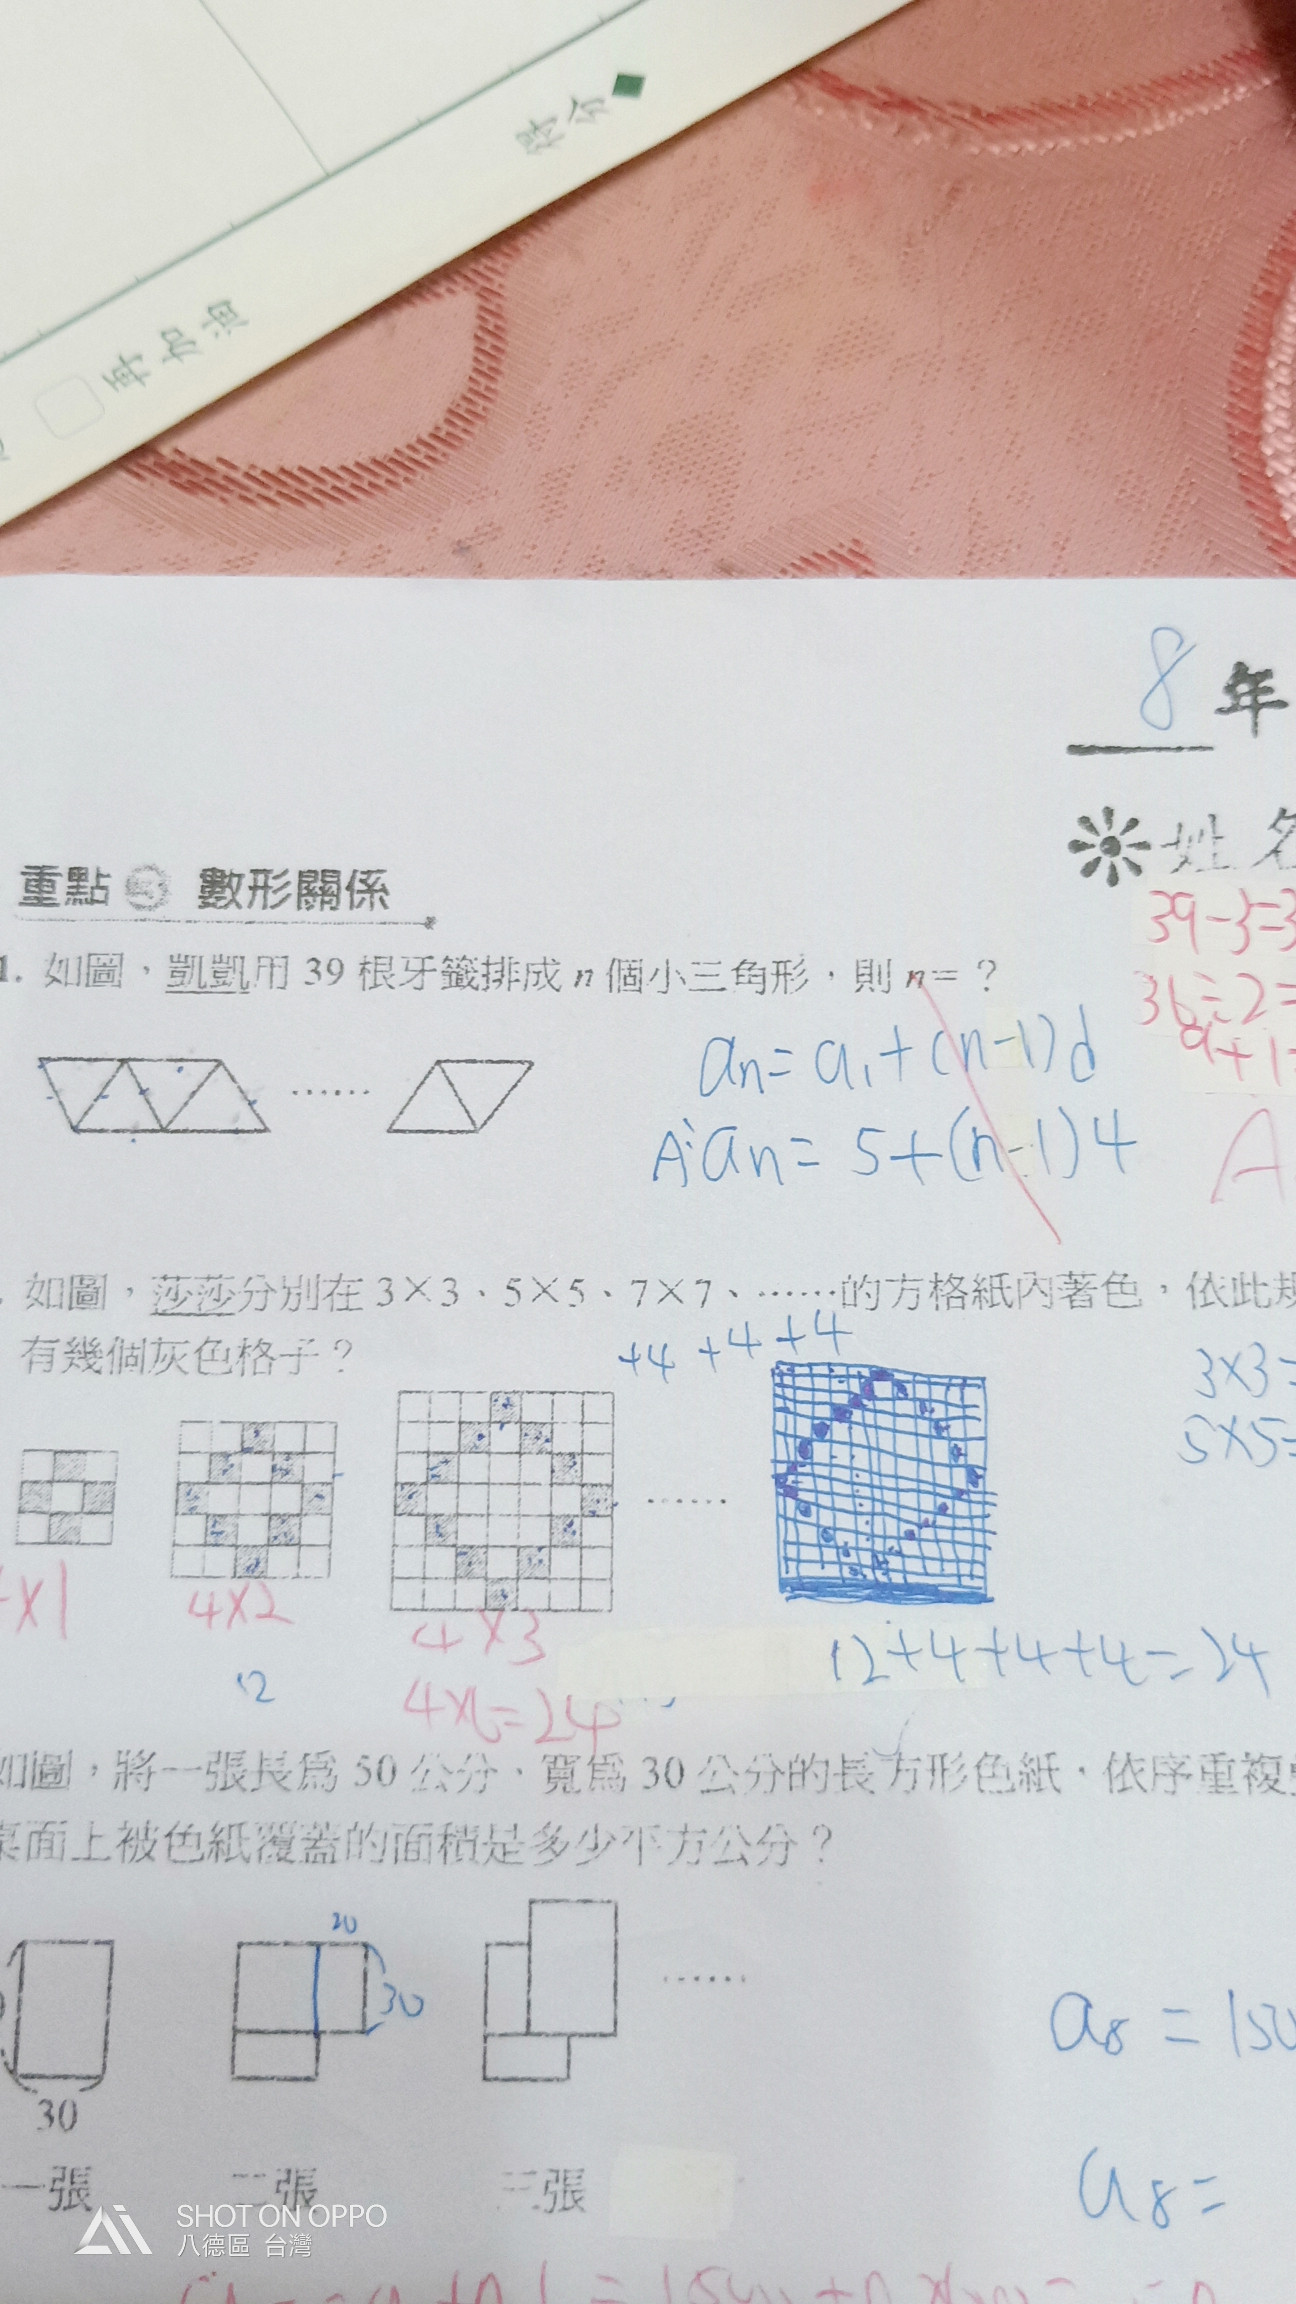 得分◆
再加油
8 年
姓名
重點 數形關係
39-3=3
1. 如圖，凱凱用 39 根牙籤排成 n 個小三角形，則 n=？
36÷2=
an=a1+(n-1)d
A:an=5+(n-1)4
A
如圖，莎莎分別在 3×3、5×5、7×7、……的方格紙內著色，依此規
有幾個灰色格子？
+4 +4 +4
3×3=
5×5=
……
×1
4×2
4×3
12+4+4+4=24
12
4×6=24
如圖，將一張長為 50 公分、寬為 30 公分的長方形色紙，依序重複
桌面上被色紙覆蓋的面積是多少平方公分？
20
30
……
a8=150
30
一張 二張 三張
a8=
SHOT ON OPPO
八德區 台灣